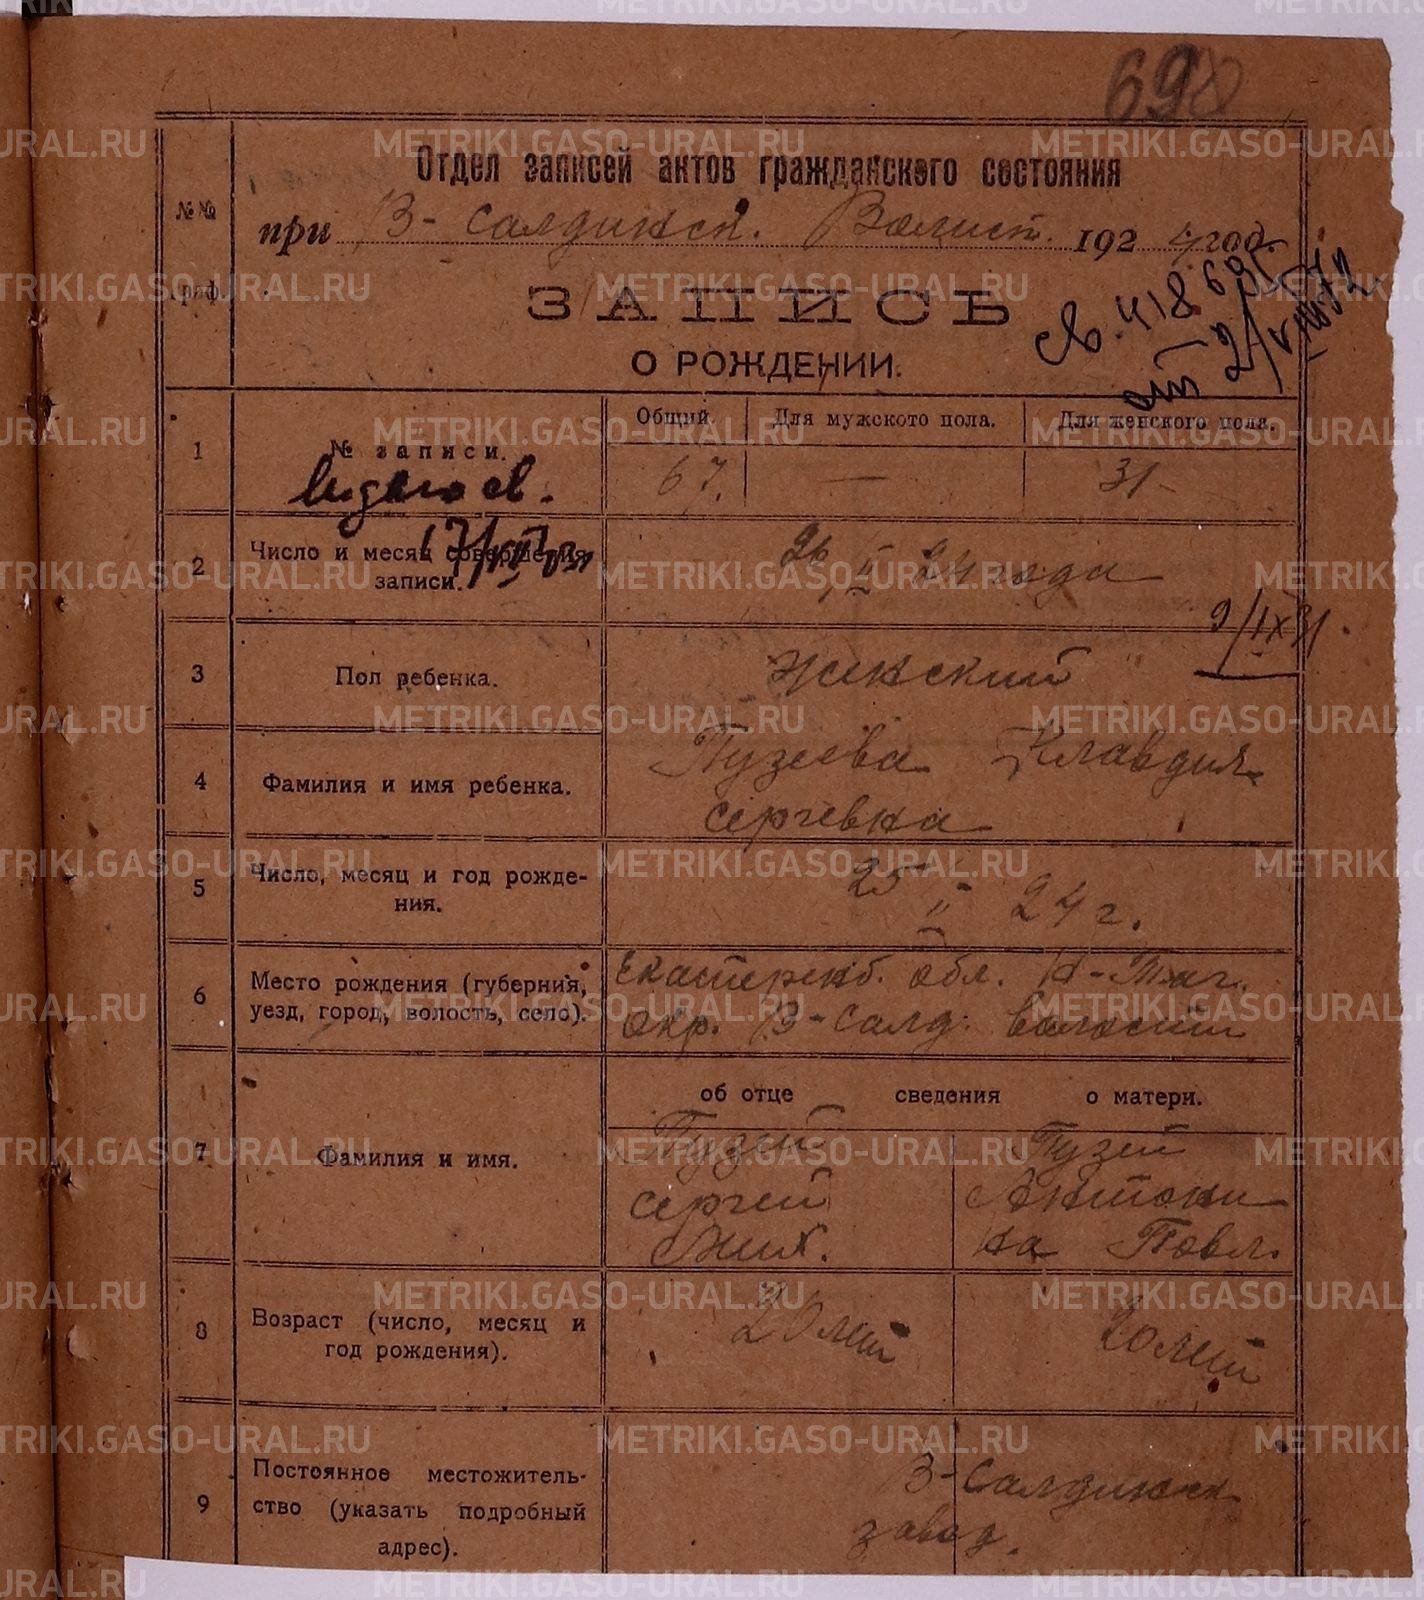 698
Отдел записей актов гражданского состояния
№№ граф.
при В-Салдинск. Волист. 1924 год
ЗАПИСЬ
О РОЖДЕНИИ.
св. 418695
от 2/
Общий. Для мужского пола. Для женского пола.
1 № записи. 67. — 31
выдано св.
17/VII 31
2 Число и месяц совершения записи. 26/II 24 года
9/IX 31.
3 Пол ребенка. женский
4 Фамилия и имя ребенка. Пузеева Клавдия
Сергевна
5 Число, месяц и год рожде-
ния. 25/II 24 г.
6 Место рождения (губерния, Екатеренб. обл. Н-Таг.
уезд, город, волость, село). окр. В-Салд. волости
об отце сведения о матери.
7 Фамилия и имя. Пузей Пузей
Сергей Антони
Мих. на Павл.
8 Возраст (число, месяц и
год рождения). 20 лет 20 лет
9 Постоянное местожитель-
ство (указать подробный
адрес). В-Салдинск
завод.
METRIKI.GASO-URAL.RU